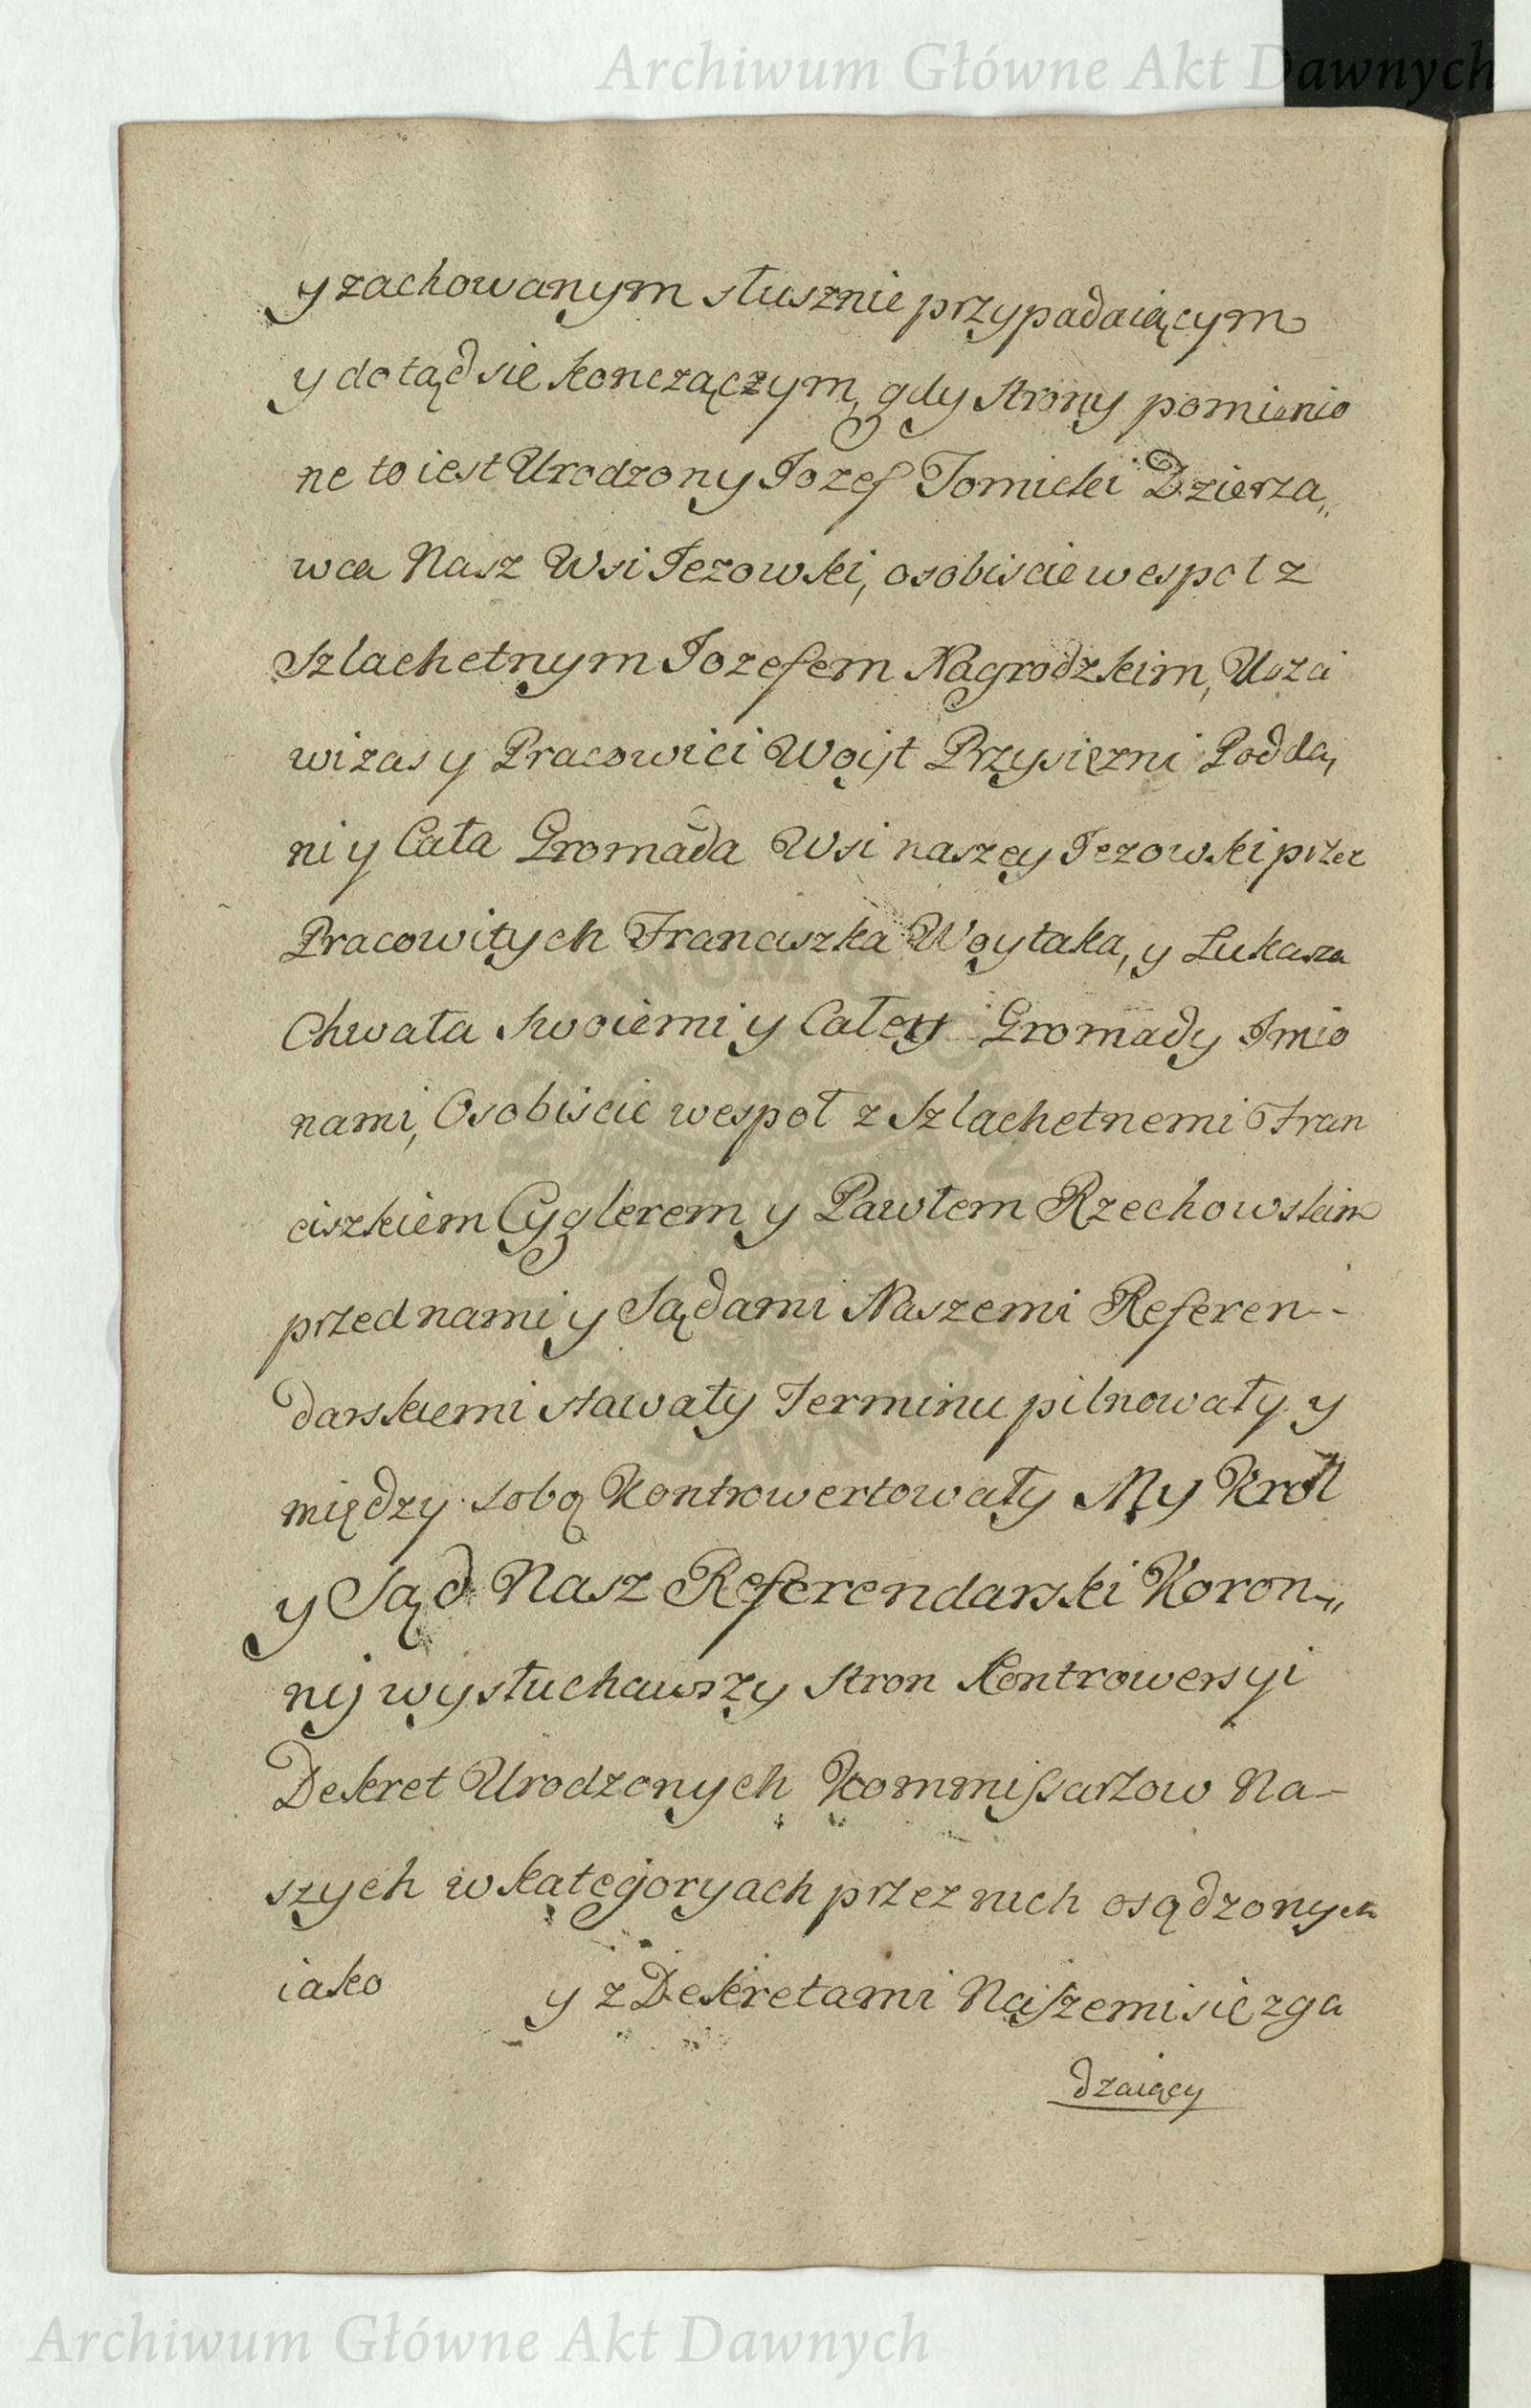 Archiwum Główne Akt Dawnych
y zachowanym słusznie przypadaiącym
y dotąd sie konczączym, gdy strony pomienio
ne to iest Urodzony Jozef Tomicki Dzierza„
wca Nasz Wsi Jezowski, osobiscie wespoł z
Szlachetnym Jozefem Nagrodzkim, Uczci
wi zas y Pracowici Woyt Przysięzni Podda,
ni y Cała Gromada Wsi naszey Jezowski przez
Pracowitych Franciszka Woytaka, y Lukasza
Chwała swoiemi y Całey Gromady Imio
nami, Osobiscie wespoł z Szlachetnemi Fran
ciszkiem Cyglerem y Pawłem Rzechowskim
przed nami y Sądami Naszemi Referen--
darskiemi stawały Terminu pilnowały y
między sobą Kontrowertowały My Krol
y Sąd Nasz Referendarski Koron-„
nij wysłuchawszy stron Kontrowersyi
Dekret Urodzonych Kommissarzow Na-
szych w kategoryach przez nich osądzonych
iako y z Dekretami Naszemi się zga
dzaiący
Archiwum Główne Akt Dawnych